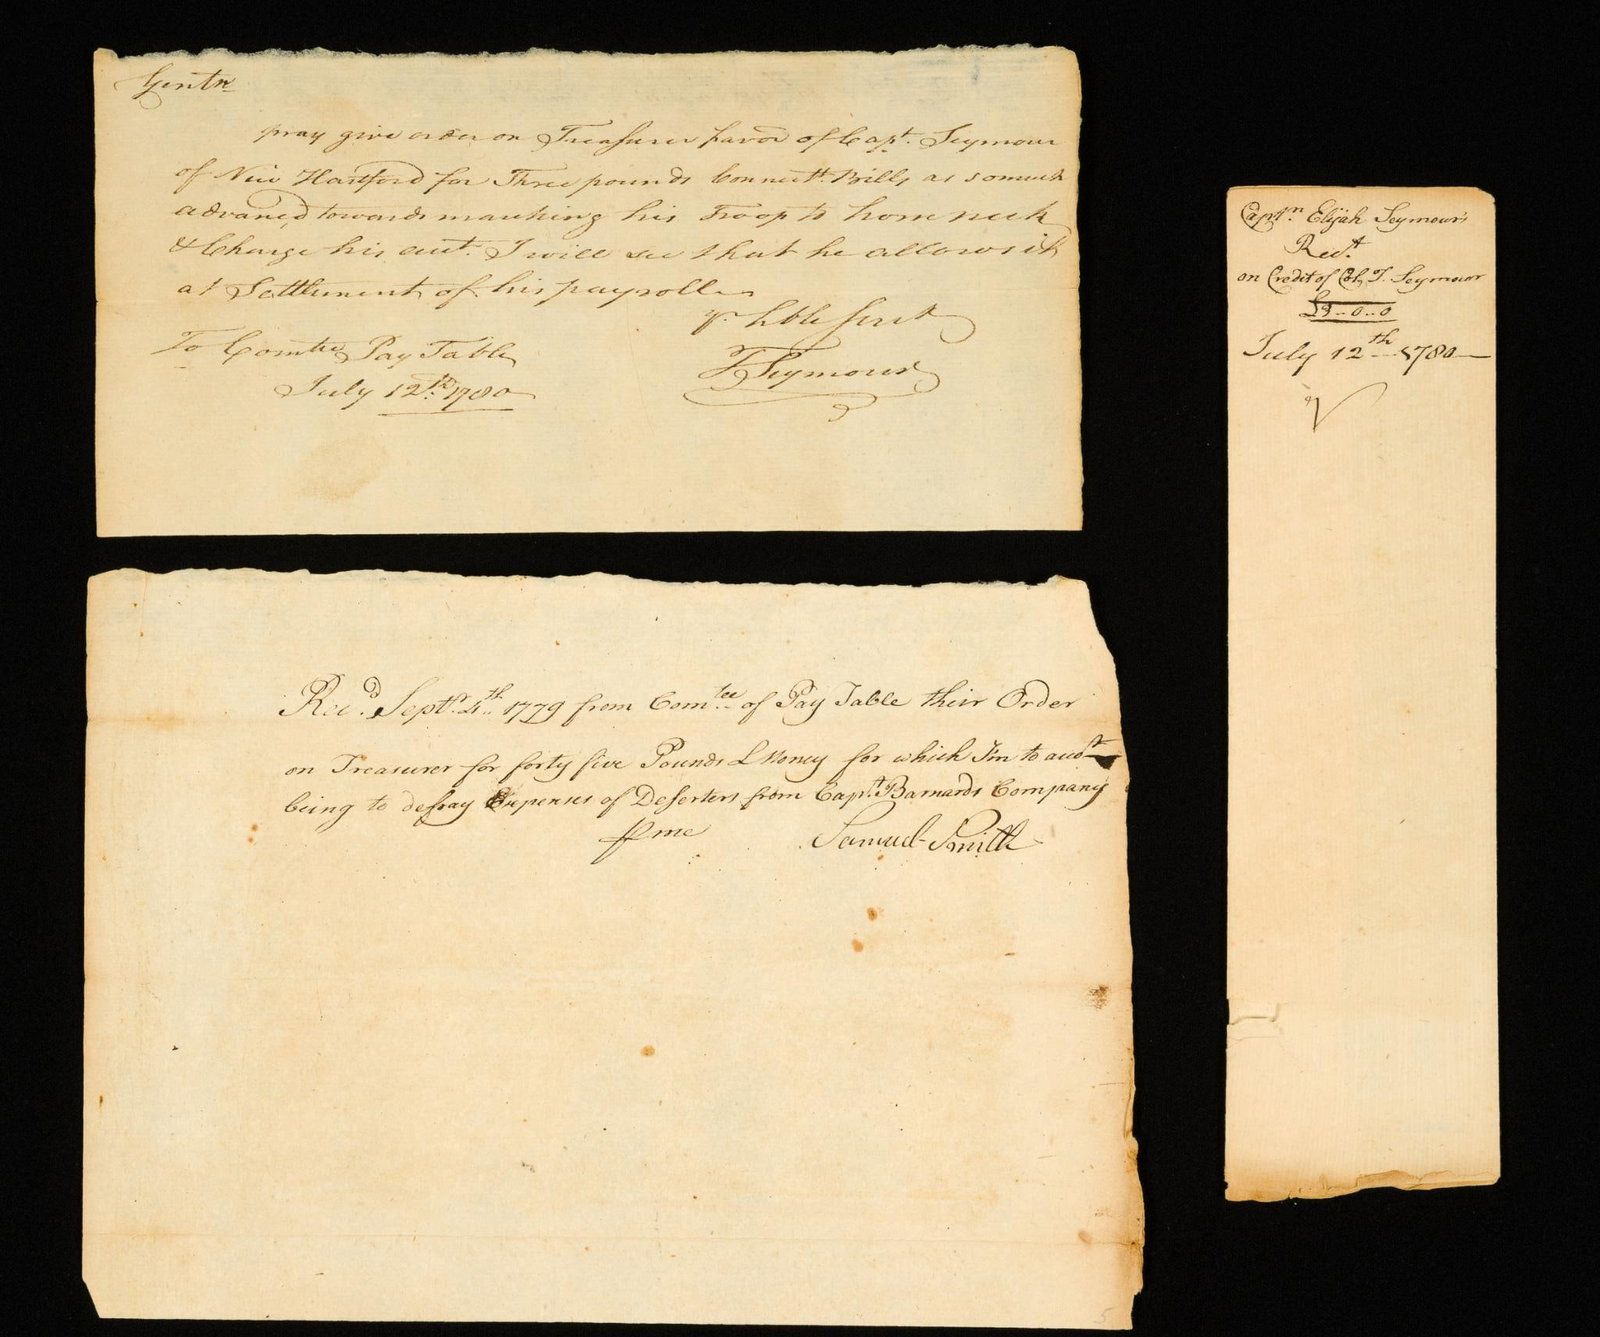 Gentn
pray give order on Treasurer favor of Capt. Seymour
of New Hartford for Three pounds Connectt. Bills as somuch
advanc'd towards marching his Troop to horse neck
& Charge his acct. I will see that he allows it
at Settlement of his payroll
yr. hble servt
T Seymour
To Comtee Pay Table
July 12th. 1780
Recd. Septr. 4th. 1779 from Comtee of Pay Table their Order
on Treasurer for forty five Pounds L Money for which I'm to accot
being to defray Expenses of Deserters from Capt. Barnards Company
pr me Samuel Smith
Captn. Elijah Seymour's
Rect.
on Credit of Col. T. Seymour
£3..0..0
July 12th 1780